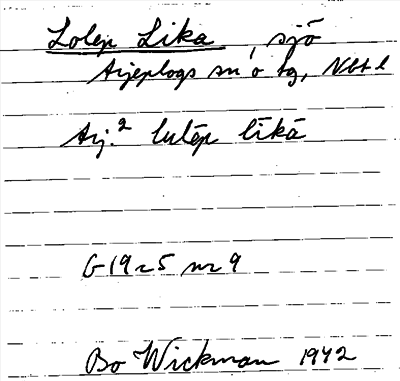 Lolep Lika, sjö
Arjeplogs sn o tg, Nbt l
Arj.² lulēp līkā
G 19 c 5 nr 9
Bo Wickman 1942